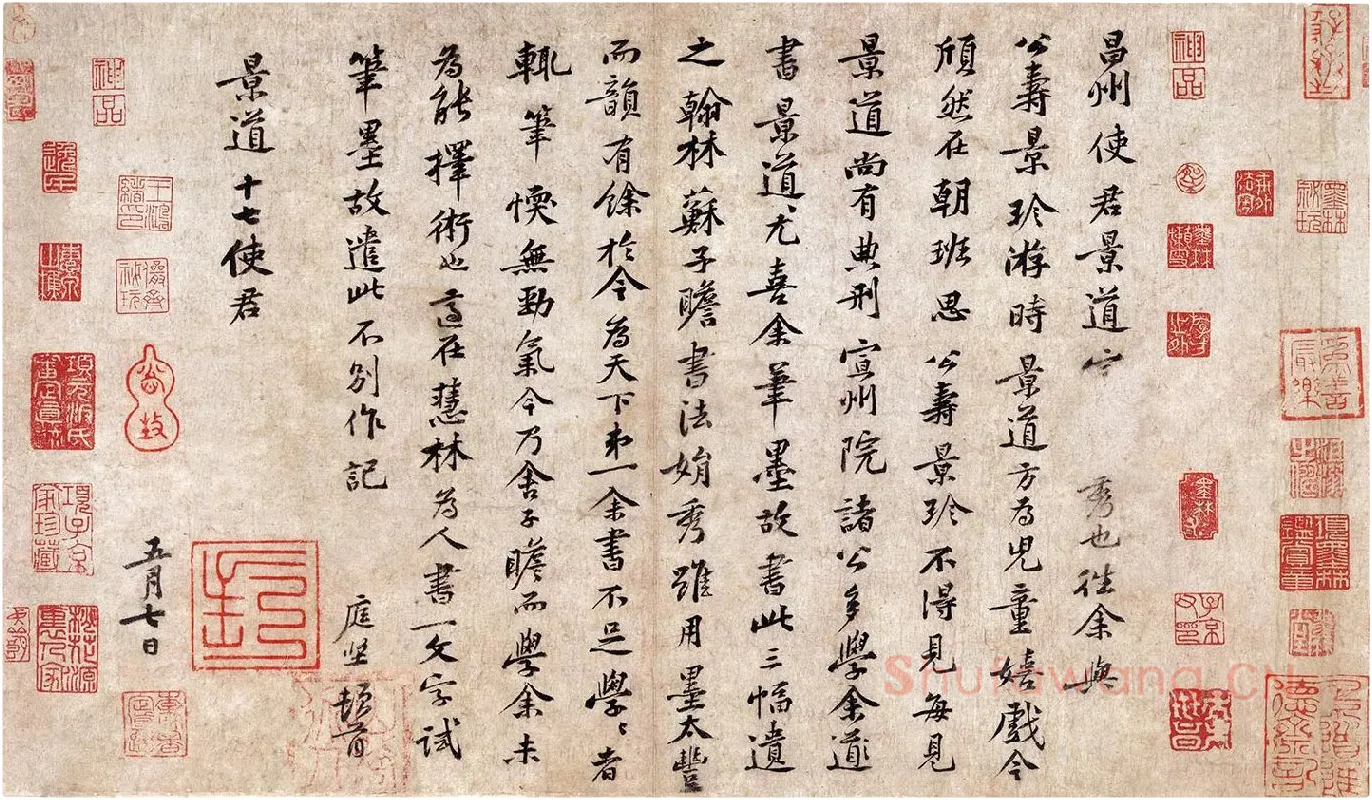 昌州使君景道 秀也往余與
公壽景珍游時景道方為兒童嬉戲今
頎然在朝班思公壽景珍不得見每見
景道尚有典刑宣州院諸公多學余道
書景道尤喜余筆墨故書此三幅遺
之翰林蘇子瞻書法娟秀雖用墨太豐
而韻有餘於今為天下第一余書不足學〻者
輒筆愞無勁氣今乃舍子瞻而學余未
為能擇術也適在慧林為人書一文字試
筆墨故遣此不別作記 庭堅頓首
景道十七使君
五月七日
神品
神品
Shufawang.CN